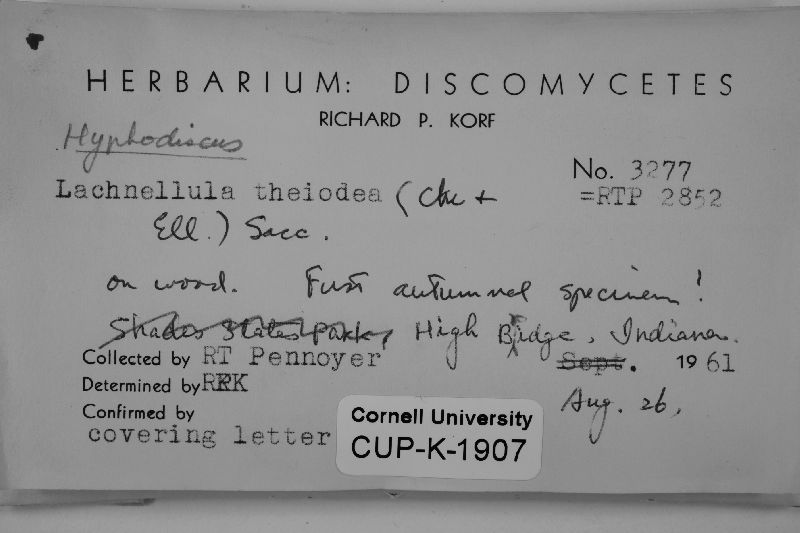 HERBARIUM: DISCOMYCETES
RICHARD P. KORF
Hyphodiscus
No. 3277
Lachnellula theiodea (Cke +
=RTP 2852
Ell.) Sacc.
on wood. First autumnal specimen!
Shades States Park, High Bridge, Indiana.
Collected by RT Pennoyer Sept. 1961
Determined by RPK
Aug. 26,
Confirmed by
covering letter
Cornell University
CUP-K-1907